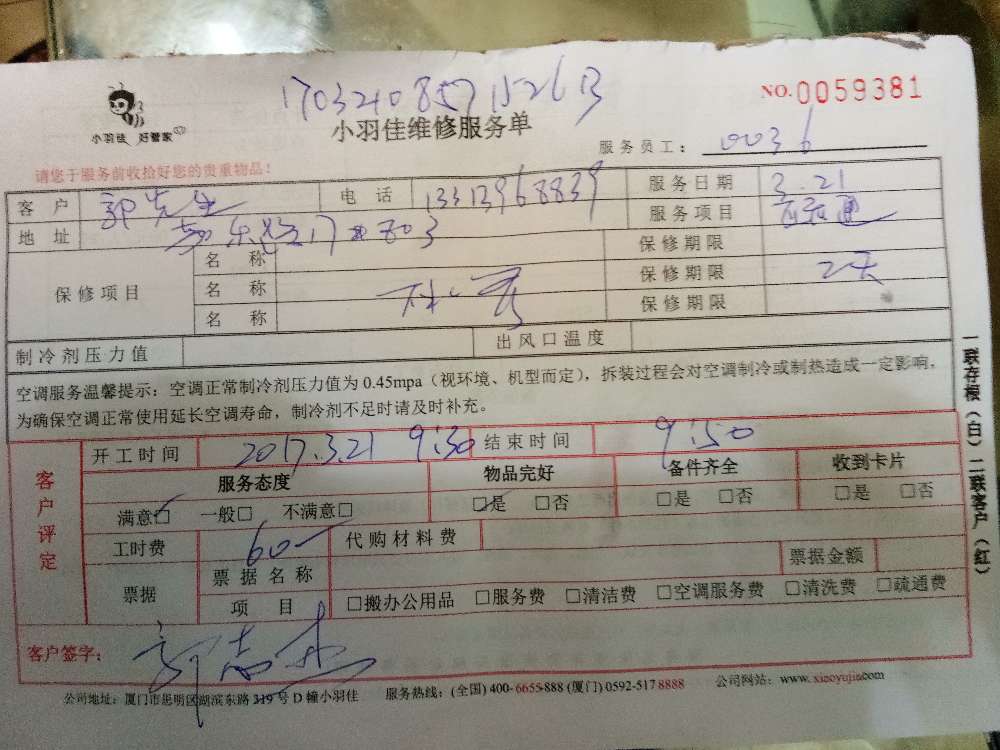 17032108571526B
NO.0059381
小羽佳 好管家
小羽佳维修服务单
服务员工： 0036
请您于服务前收拾好您的贵重物品！
客 户 郭先生 电 话 13313968839 服务日期 3.21
地 址 803 服务项目
保修项目 名 称 保修期限
名 称 保修期限 2天
名 称 保修期限
制冷剂压力值 出风口温度
空调服务温馨提示：空调正常制冷剂压力值为0.45mpa（视环境、机型而定），拆装过程会对空调制冷或制热造成一定影响，
为确保空调正常使用延长空调寿命，制冷剂不足时请及时补充。
客户评定
开工时间 2017.3.21 9:30 结束时间 9:50
服务态度 物品完好 备件齐全 收到卡片
满意□ 一般□ 不满意□ □是 □否 □是 □否 □是 □否
工时费 60- 代购材料费
票据 票据名称 票据金额
项 目 □搬办公用品 □服务费 □清洁费 □空调服务费 □清洗费 □疏通费
客户签字：
公司地址：厦门市思明区湖滨东路319号D幢小羽佳 服务热线：(全国) 400-6655-888 (厦门) 0592-517 8888 公司网站：www.xiaoyujia.com
一联存根（白）二联客户（红）